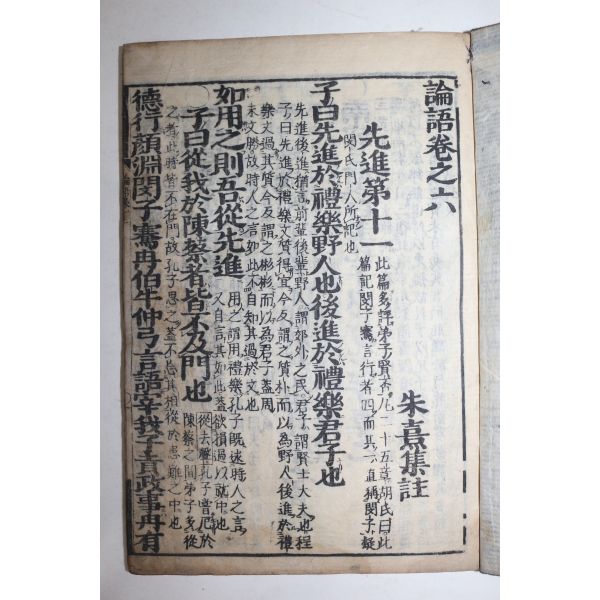 論語卷之六
朱熹集註
先進第十一
此篇多評弟子賢否凡二十五章胡氏曰此
篇記閔子騫言行者四而其一直稱閔子疑
閔氏門人所記也
子曰先進於禮樂野人也後進於禮樂君子也
先進後進猶言前輩後輩野人謂郊外之民君子謂賢士大夫也程
子曰先進於禮樂文質得宜今反謂之質朴而以爲野人後進於禮
樂文過其質今反謂之彬彬而以爲君子盖周
末文勝故時人之言如此不自知其過於文也
如用之則吾從先進
用之謂用禮樂孔子既述時人之言
又自言其如此盖欲損過以就中也
子曰從我於陳蔡者皆不及門也
從去聲孔子嘗厄於
陳蔡之間弟子多從
之者此時皆不在門故孔子思之盖不忘其相從於患難之中也
德行顔淵閔子騫冉伯牛仲弓言語宰我子貢政事冉有